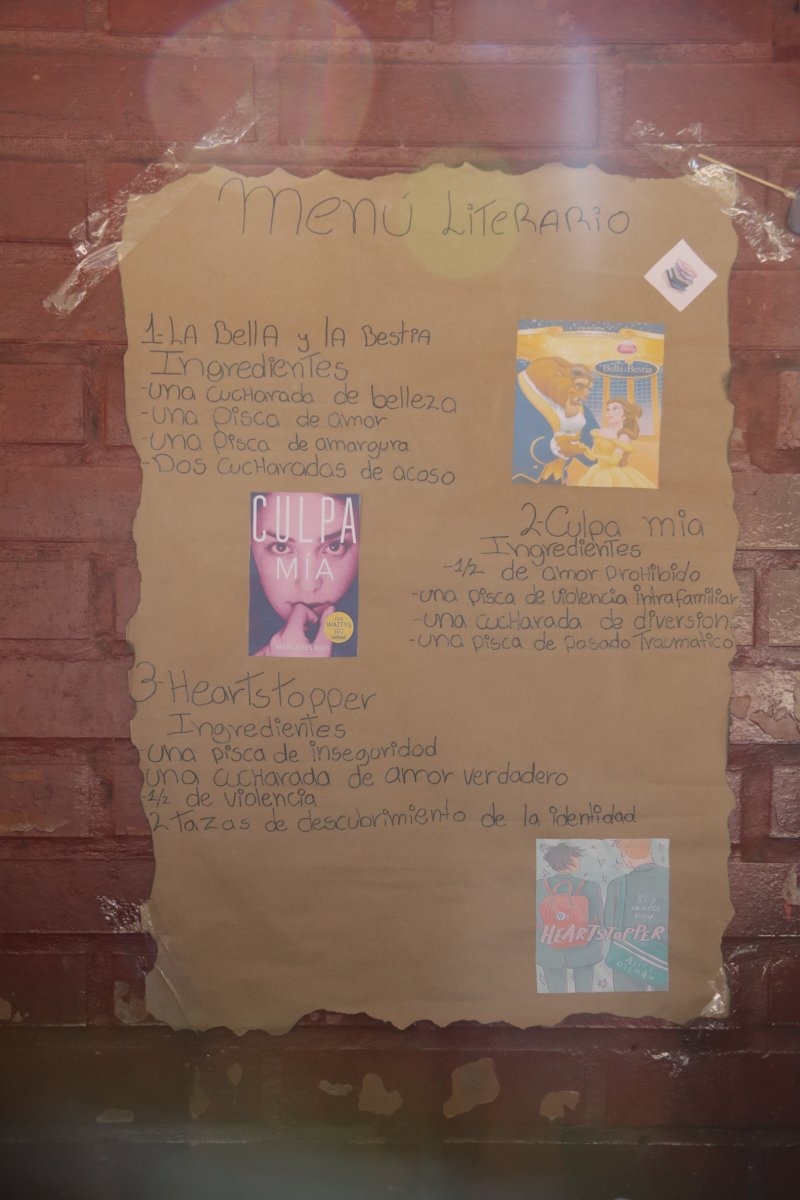 Menú Literario
1-La Bella y la Bestia
Ingredientes
-una cucharada de belleza
-una pisca de amor
-una pisca de amargura
-Dos cucharadas de acoso
La Bella y la Bestia
CULPA
MÍA
THE WATTYS
MERCEDES RON
2-Culpa mia
Ingredientes
-1/2 de amor prohibido
-una pisca de violencia intrafamiliar
-una cucharada de diversion
-una pisca de pasado traumatico
3-Heartstopper
Ingredientes
-una pisca de inseguridad
una cucharada de amor verdadero
-1/2 de violencia
2 tazas de descubrimiento de la identidad
Boy
meets
boy.
HEARTSTOPPER
ALICE
OSEMAN